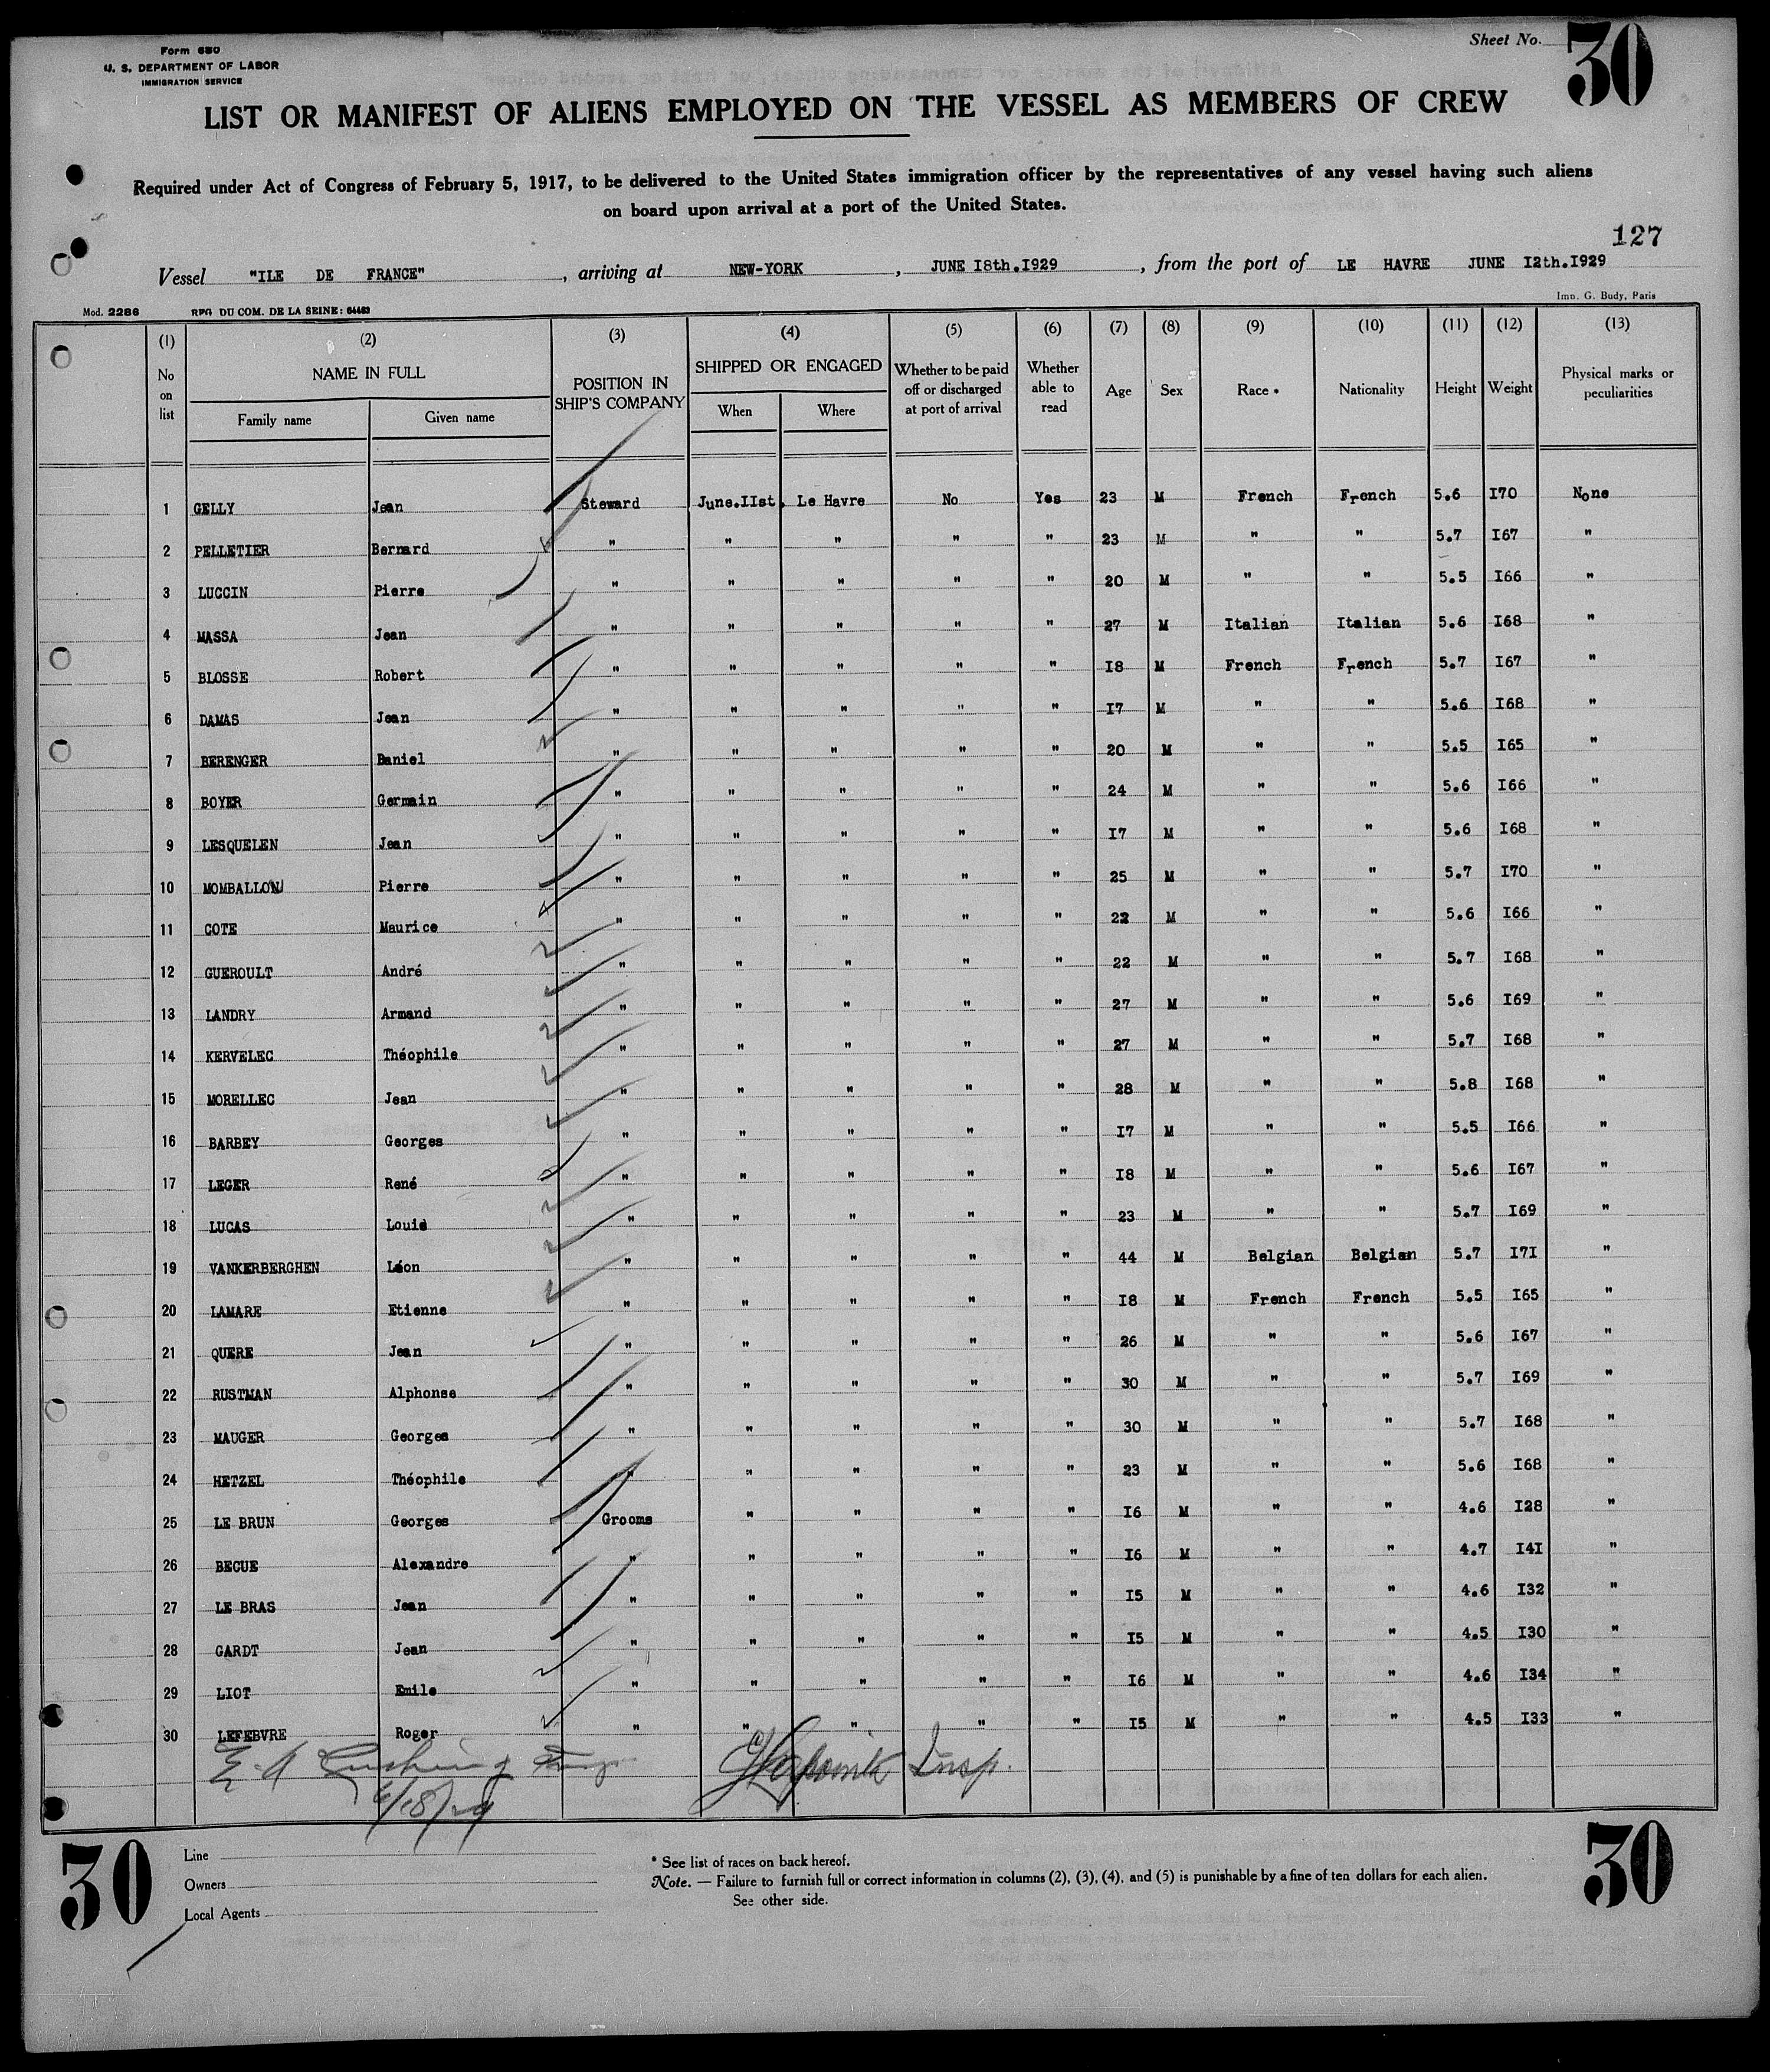 Form 680
U. S. DEPARTMENT OF LABOR
IMMIGRATION SERVICE
Sheet No. 30
LIST OR MANIFEST OF ALIENS EMPLOYED ON THE VESSEL AS MEMBERS OF CREW
Required under Act of Congress of February 5, 1917, to be delivered to the United States immigration officer by the representatives of any vessel having such aliens
on board upon arrival at a port of the United States.
127
Vessel "ILE DE FRANCE", arriving at NEW-YORK, JUNE I8th.I929, from the port of LE HAVRE JUNE I2th.I929
Mod. 2286 REG DU COM. DE LA SEINE: 64483 Imp. G. Budy, Paris
(1) (2) (3) (4) (5) (6) (7) (8) (9) (10) (11) (12) (13)
No on list NAME IN FULL Family name Given name POSITION IN SHIP'S COMPANY SHIPPED OR ENGAGED When Where Whether to be paid off or discharged at port of arrival Whether able to read Age Sex Race * Nationality Height Weight Physical marks or peculiarities
1 GELLY Jean Steward June.IIst. Le Havre No Yes 23 M French French 5.6 I70 None
2 PELLETIER Bernard " " " " " 23 M " " 5.7 I67 "
3 LUCCIN Pierre " " " " " 20 M " " 5.5 I66 "
4 MASSA Jean " " " " " 27 M Italian Italian 5.6 I68 "
5 BLOSSE Robert " " " " " I8 M French French 5.7 I67 "
6 DAMAS Jean " " " " " I7 M " " 5.6 I68 "
7 BERENGER Daniel " " " " " 20 M " " 5.5 I65 "
8 BOYER Germain " " " " " 24 M " " 5.6 I66 "
9 LESQUELEN Jean " " " " " I7 M " " 5.6 I68 "
10 MOMBALLON Pierre " " " " " 25 M " " 5.7 I70 "
11 COTE Maurice " " " " " 22 M " " 5.6 I66 "
12 GUEROULT André " " " " " 22 M " " 5.7 I68 "
13 LANDRY Armand " " " " " 27 M " " 5.6 I69 "
14 KERVELEC Théophile " " " " " 27 M " " 5.7 I68 "
15 MORELLEC Jean " " " " " 28 M " " 5.8 I68 "
16 BARBEY Georges " " " " " I7 M " " 5.5 I66 "
17 LEGER René " " " " " I8 M " " 5.6 I67 "
18 LUCAS Louis " " " " " 23 M " " 5.7 I69 "
19 VANKERBERGHEN Léon " " " " " 44 M Belgian Belgian 5.7 I7I "
20 LAMARE Etienne " " " " " I8 M French French 5.5 I65 "
21 QUERE Jean " " " " " 26 M " " 5.6 I67 "
22 RUSTMAN Alphonse " " " " " 30 M " " 5.7 I69 "
23 MAUGER Georges " " " " " 30 M " " 5.7 I68 "
24 HETZEL Théophile " " " " " 23 M " " 5.6 I68 "
25 LE BRUN Georges Grooms " " " " I6 M " " 4.6 I28 "
26 BECUE Alexandre " " " " " I6 M " " 4.7 I4I "
27 LE BRAS Jean " " " " " I5 M " " 4.6 I32 "
28 GARDT Jean " " " " " I5 M " " 4.5 I30 "
29 LIOT Emile " " " " " I6 M " " 4.6 I34 "
30 LEFEBVRE Roger " " " " " I5 M " " 4.5 I33 "
Insp.
6/18/29
30 30
Line
Owners
Local Agents
* See list of races on back hereof.
Note. — Failure to furnish full or correct information in columns (2), (3), (4), and (5) is punishable by a fine of ten dollars for each alien.
See other side.